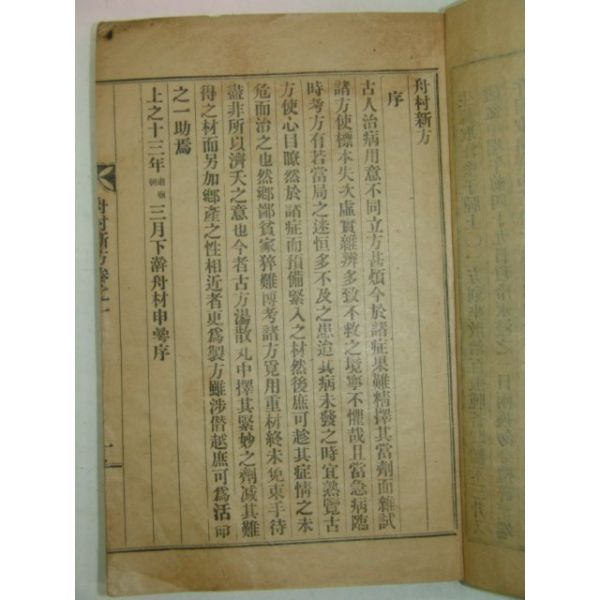 舟村新方
序
古人治病用意不同立方甚煩今於諸症果難精擇其當劑而雜試
諸方使標本失次虛實雜辨多致不救之境寧不懼哉且當急病臨
時考方有若當局之迷恒多不及之患迨其病未發之時宜熟覽古
方使心目瞭然於諸症而預備緊入之材然後庶可趁其症情之未
危而治之也然鄉鄙貧家猝難博考諸方覓用重材終未免束手待
盡非所以濟夭之意也今者古方湯散丸中擇其緊妙之劑减其難
得之材而另加鄉產之性相近者更爲製方雖涉僭越庶可爲活命
之一助焉
上之十三年肅廟三月下澣舟村申曼序
舟村新方卷之一